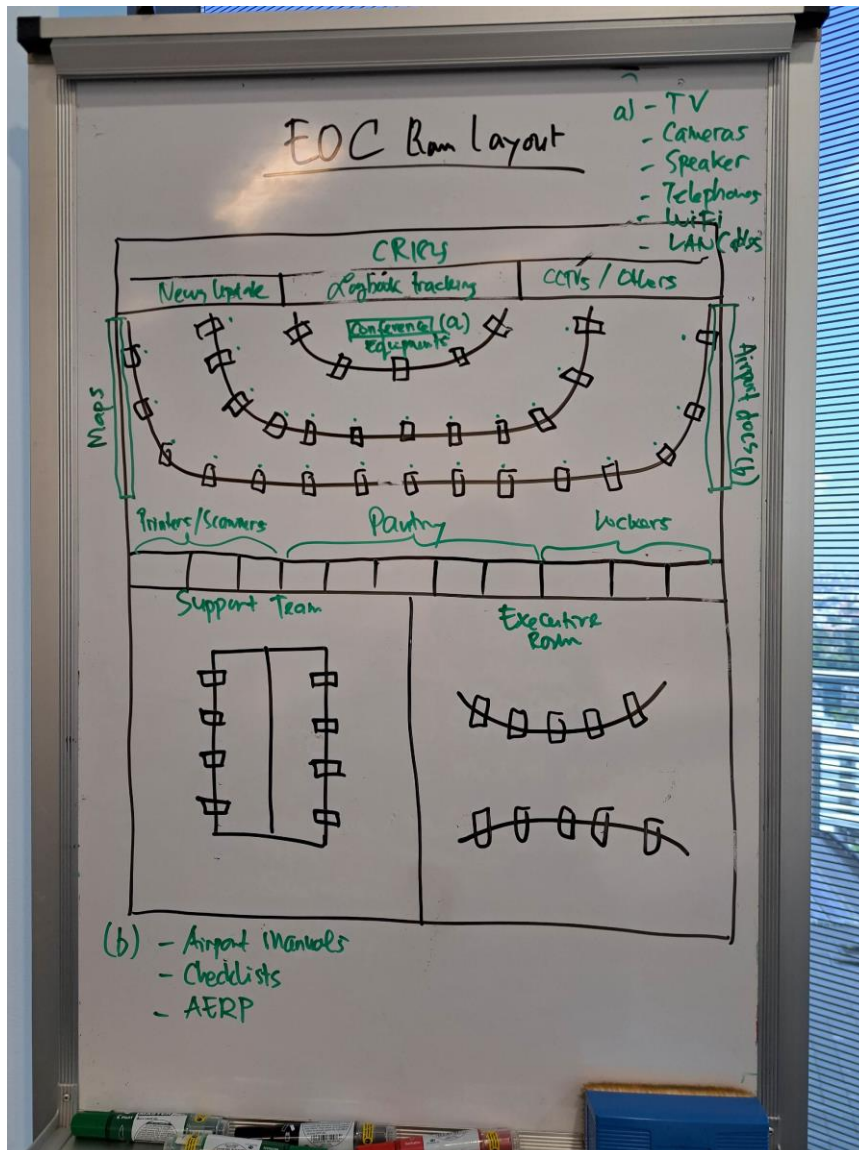 EOC Room layout
a) - TV
- Cameras
- Speaker
- Telephones
- WiFi
- LAN Cables
News Update
Logbook tracking
CCTVs / Others
Conference (a)
equipments
Maps
Airport docs (b)
Printers/Scanners
Pantry
Lockers
Support Team
Executive
Room
(b) - Airport Manuals
- Checklists
- AERP